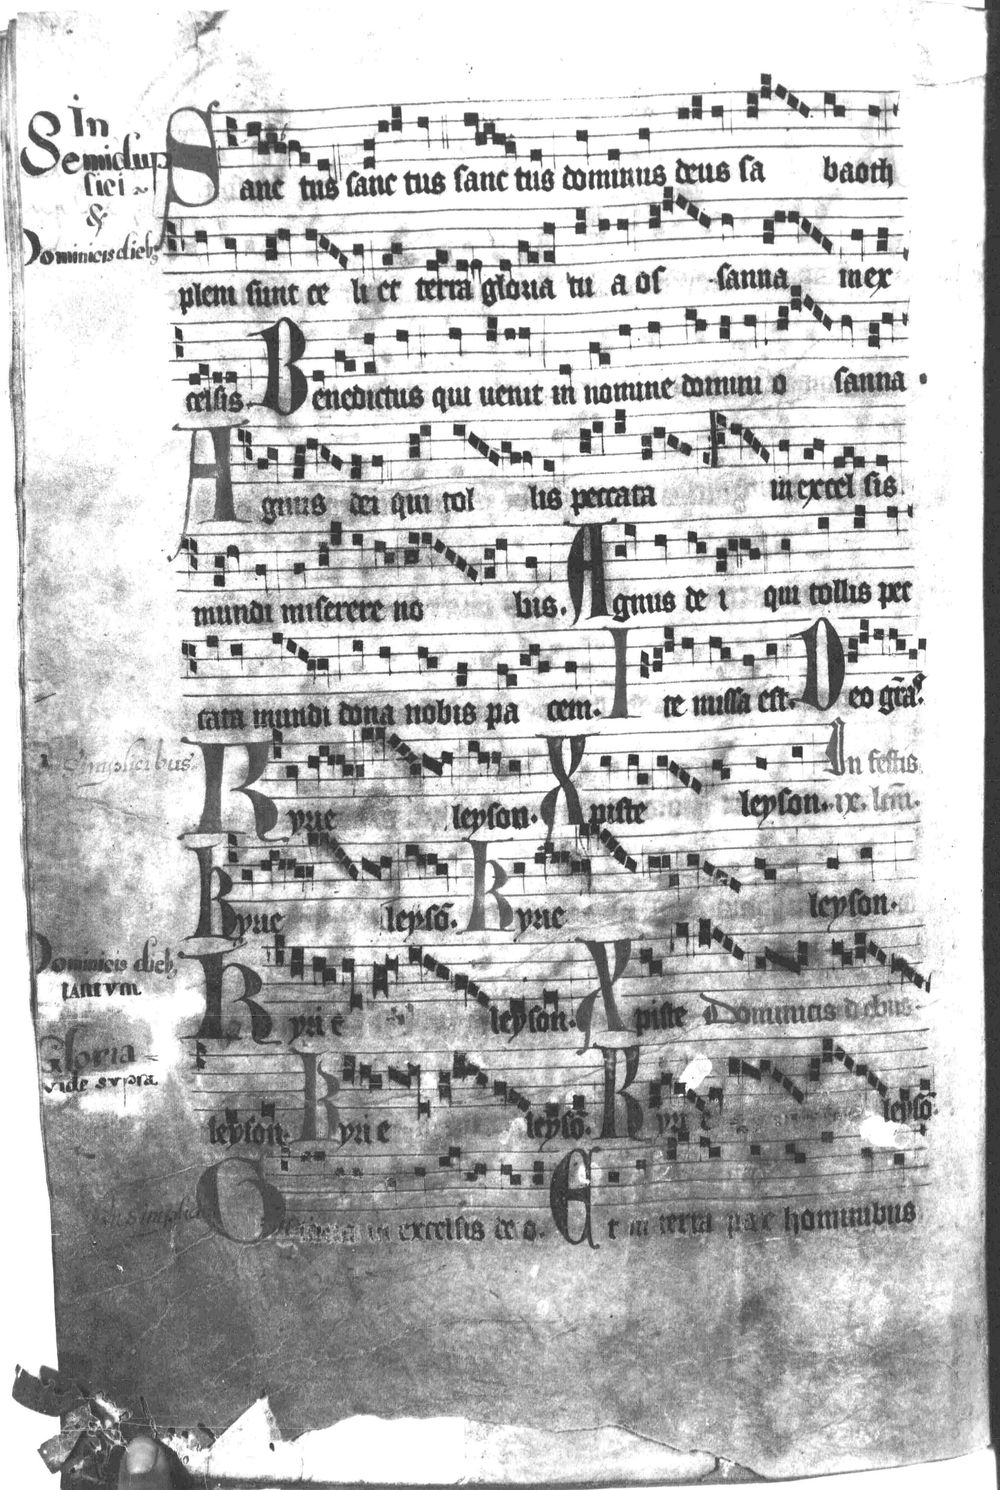 In
Semidup
sanc tus sanc tus sanc tus dominus deus sa baoth
&
Dominicis dieb9
pleni sunt ce li et terra gloria tu a os sanna in ex
celsis. Benedictus qui uenit in nomine domini o sanna
Agnus dei qui tol lis peccata in excel sis
mundi miserere no bis. Agnus de i qui tollis pec
cata mundi dona nobis pa cem. Ite missa est. Deo grãs.
Simplicibus. In festis
Kyrie leyson. Xpiste leyson. ix. lc̃m.
Kyrie leysõ. Kyrie leyson.
Dominicis dieb9
tantvm
Kyri e leyson. Xpiste Dominicis diebus.
Gloria
vide svpra
leyson. Kyri e leysõ. Kyri e leysõ.
in excelsis de o. Et in terra pa x hominibus